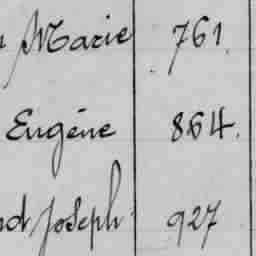 Marie 761.
Eugéne 864.
Joseph 927